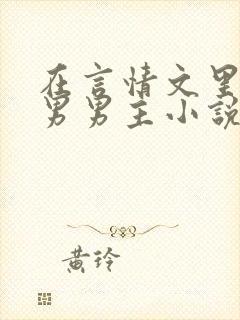 在言情文里
男男主小說
黃玲